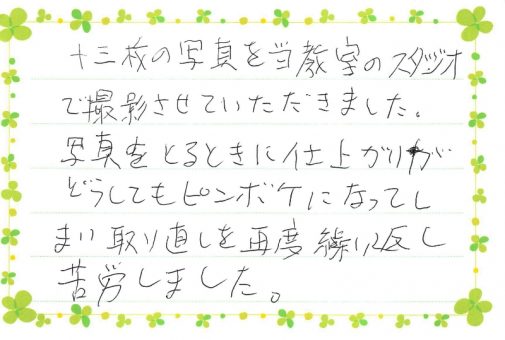 十三枚の写真を当教室のスタジオ
で撮影させていただきました。
写真をとるときに仕上がりが
どうしてもピンボケになってし
まい取り直しを再度繰り返し
苦労しました。